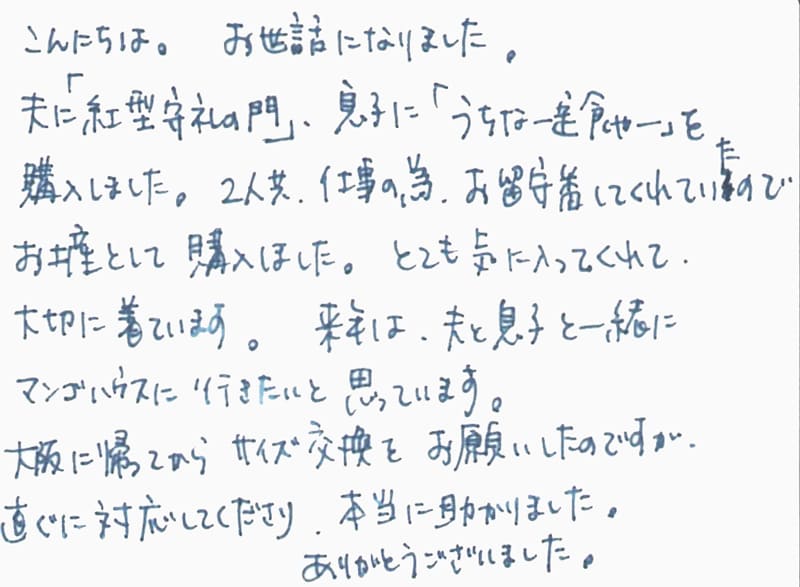 こんにちは。 お世話になりました。
夫に「紅型守礼の門」、息子に「うちなー定食やー」を
購入しました。2人共、仕事の為、お留守番してくれていたので
お土産として購入しました。とても気に入ってくれて、
大切に着ています。 来年は、夫と息子と一緒に
マンゴハウスに行きたいと思っています。
大阪に帰ってからサイズ交換をお願いしたのですが、
直ぐに対応してくださり、本当に助かりました。
ありがとうございました。